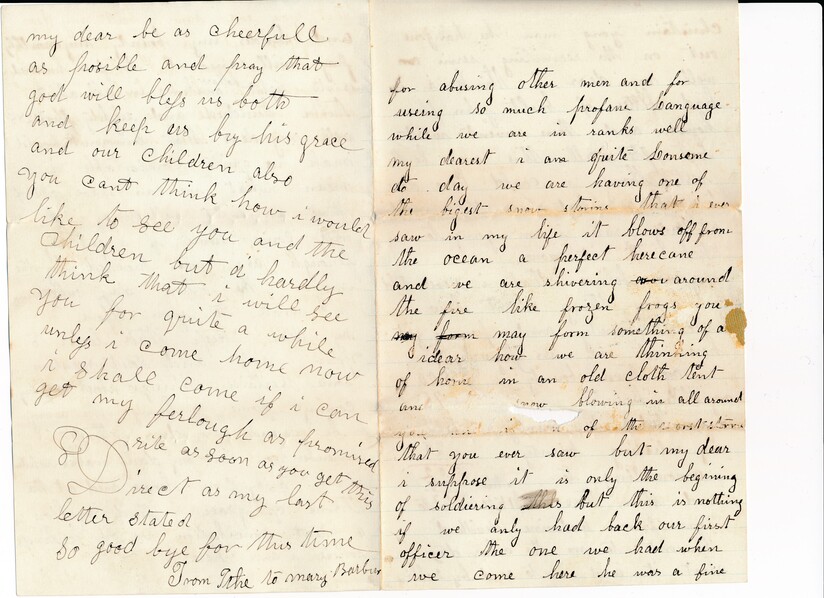 my dear be as cheerfull
as posible and pray that
god will bless us both
and keep us by his grace
and our children also
you cant think how i would
like to see you and the
children but i hardly
think that i will see
you for quite a while
unless i come home now
i shall come if i can
get my ferlough as promised
rite as soon as you get this
Direct as my last
letter stated
so good bye for this time
From to mary Barbur
for abusing other men and for
useing so much profane language
while we are in ranks well
my dearest i am quite lonseme
to day we are having one of
the bigest snow storms that i ever
saw in my life it blows off from
the ocean a perfect herecane
and we are shivering around
the fire like frozen frogs you
may form may form something of a
idear how we are thinning
of home in an old cloth tent
and snow blowing in all around
you of the worst storm
that you ever saw but my dear
i suppose it is only the begining
of soldiering this but this is nothing
if we only had back our first
officer the one we had when
we come here he was a fine